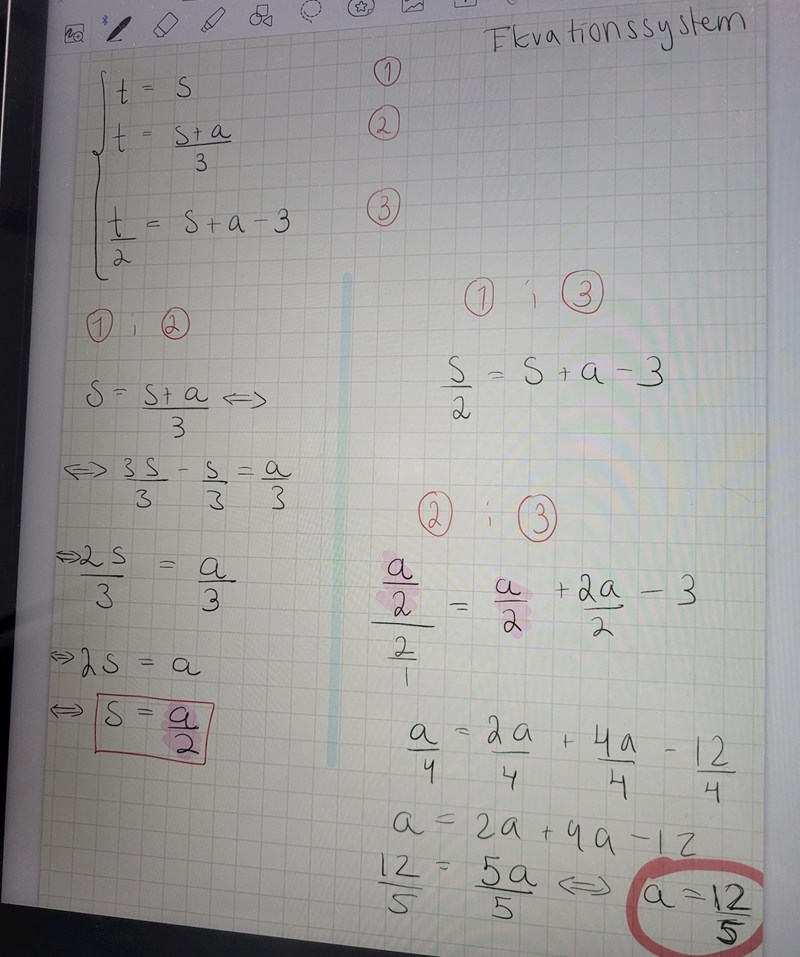 Ekvationssystem
t = s ①
t = (s+a)/3 ②
t/2 = s+a-3 ③
① i ②
s = (s+a)/3 ⇔
⇔ 3s/3 - s/3 = a/3
⇔ 2s/3 = a/3
⇔ 2s = a
⇔ s = a/2
① i ③
s/2 = s + a - 3
② i ③
(a/2)/(2/1) = a/2 + 2a/2 - 3
a/4 = 2a/4 + 4a/4 - 12/4
a = 2a + 4a - 12
12/5 = 5a/5 ⇔ a = 12/5